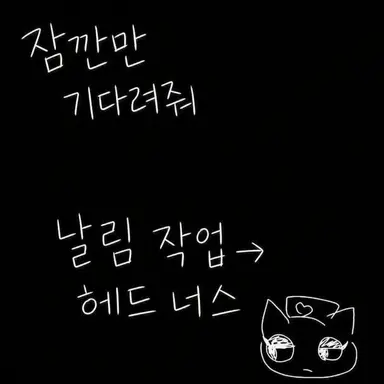 잠깐만
기다려줘
날림 작업→
헤드 너스